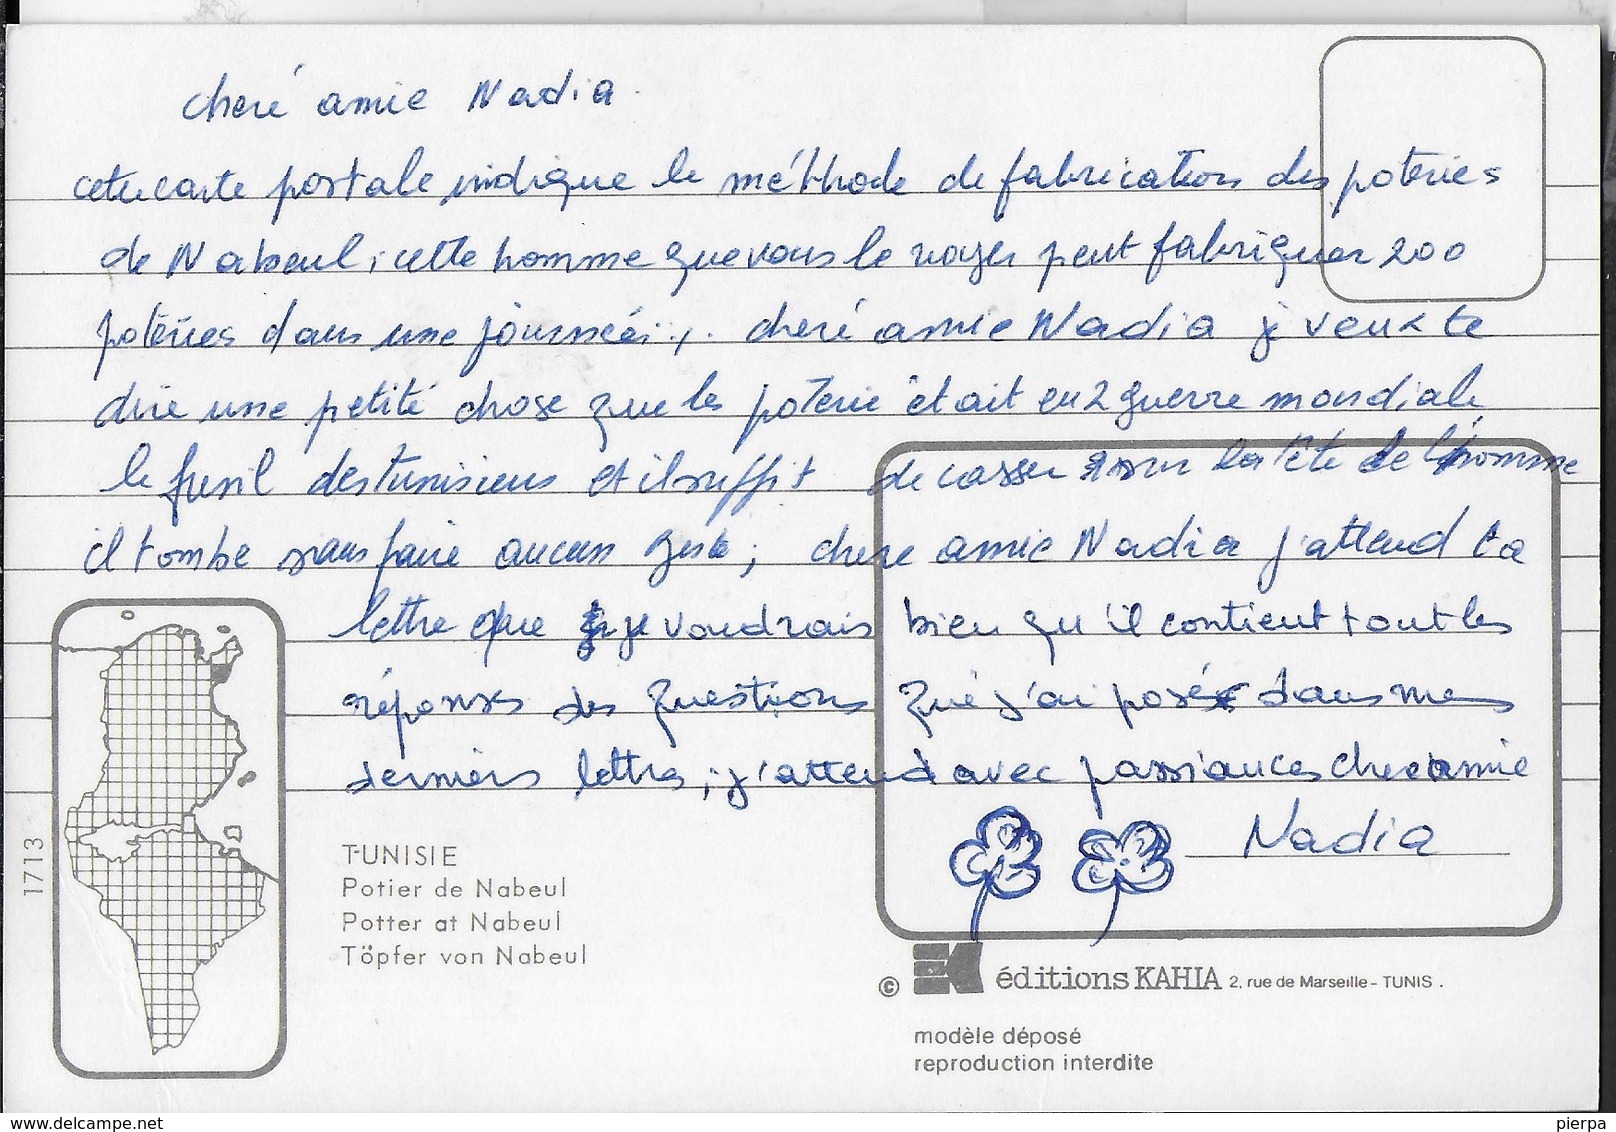 cheré amie Nadia.
cette carte postale indique le méthode de fabrication des poteries
de Nabeul, cette homme que vous le voyer peut fabriquer 200
poteries dans une journeé..,. cheré amie Nadia je veux te
dire une petité chose que les poterie était en 2 guerre mondiale
le fusil des tunisiens et il suffit de casser sur la tête de l'homme
il tombe sans faire aucun geste ; chere amie Nadia j'attend ta
lettre que je voudrais bien qu'il contient tout les
réponses des questions que j'ai posé dans mes
derniers lettres, ; j'attend avec passiances chere amie
Nadia
1713
TUNISIE
Potier de Nabeul
Potter at Nabeul
Töpfer von Nabeul
© éditions KAHIA 2, rue de Marseille - TUNIS .
modèle déposé
reproduction interdite
www.delcampe.net
pierpa